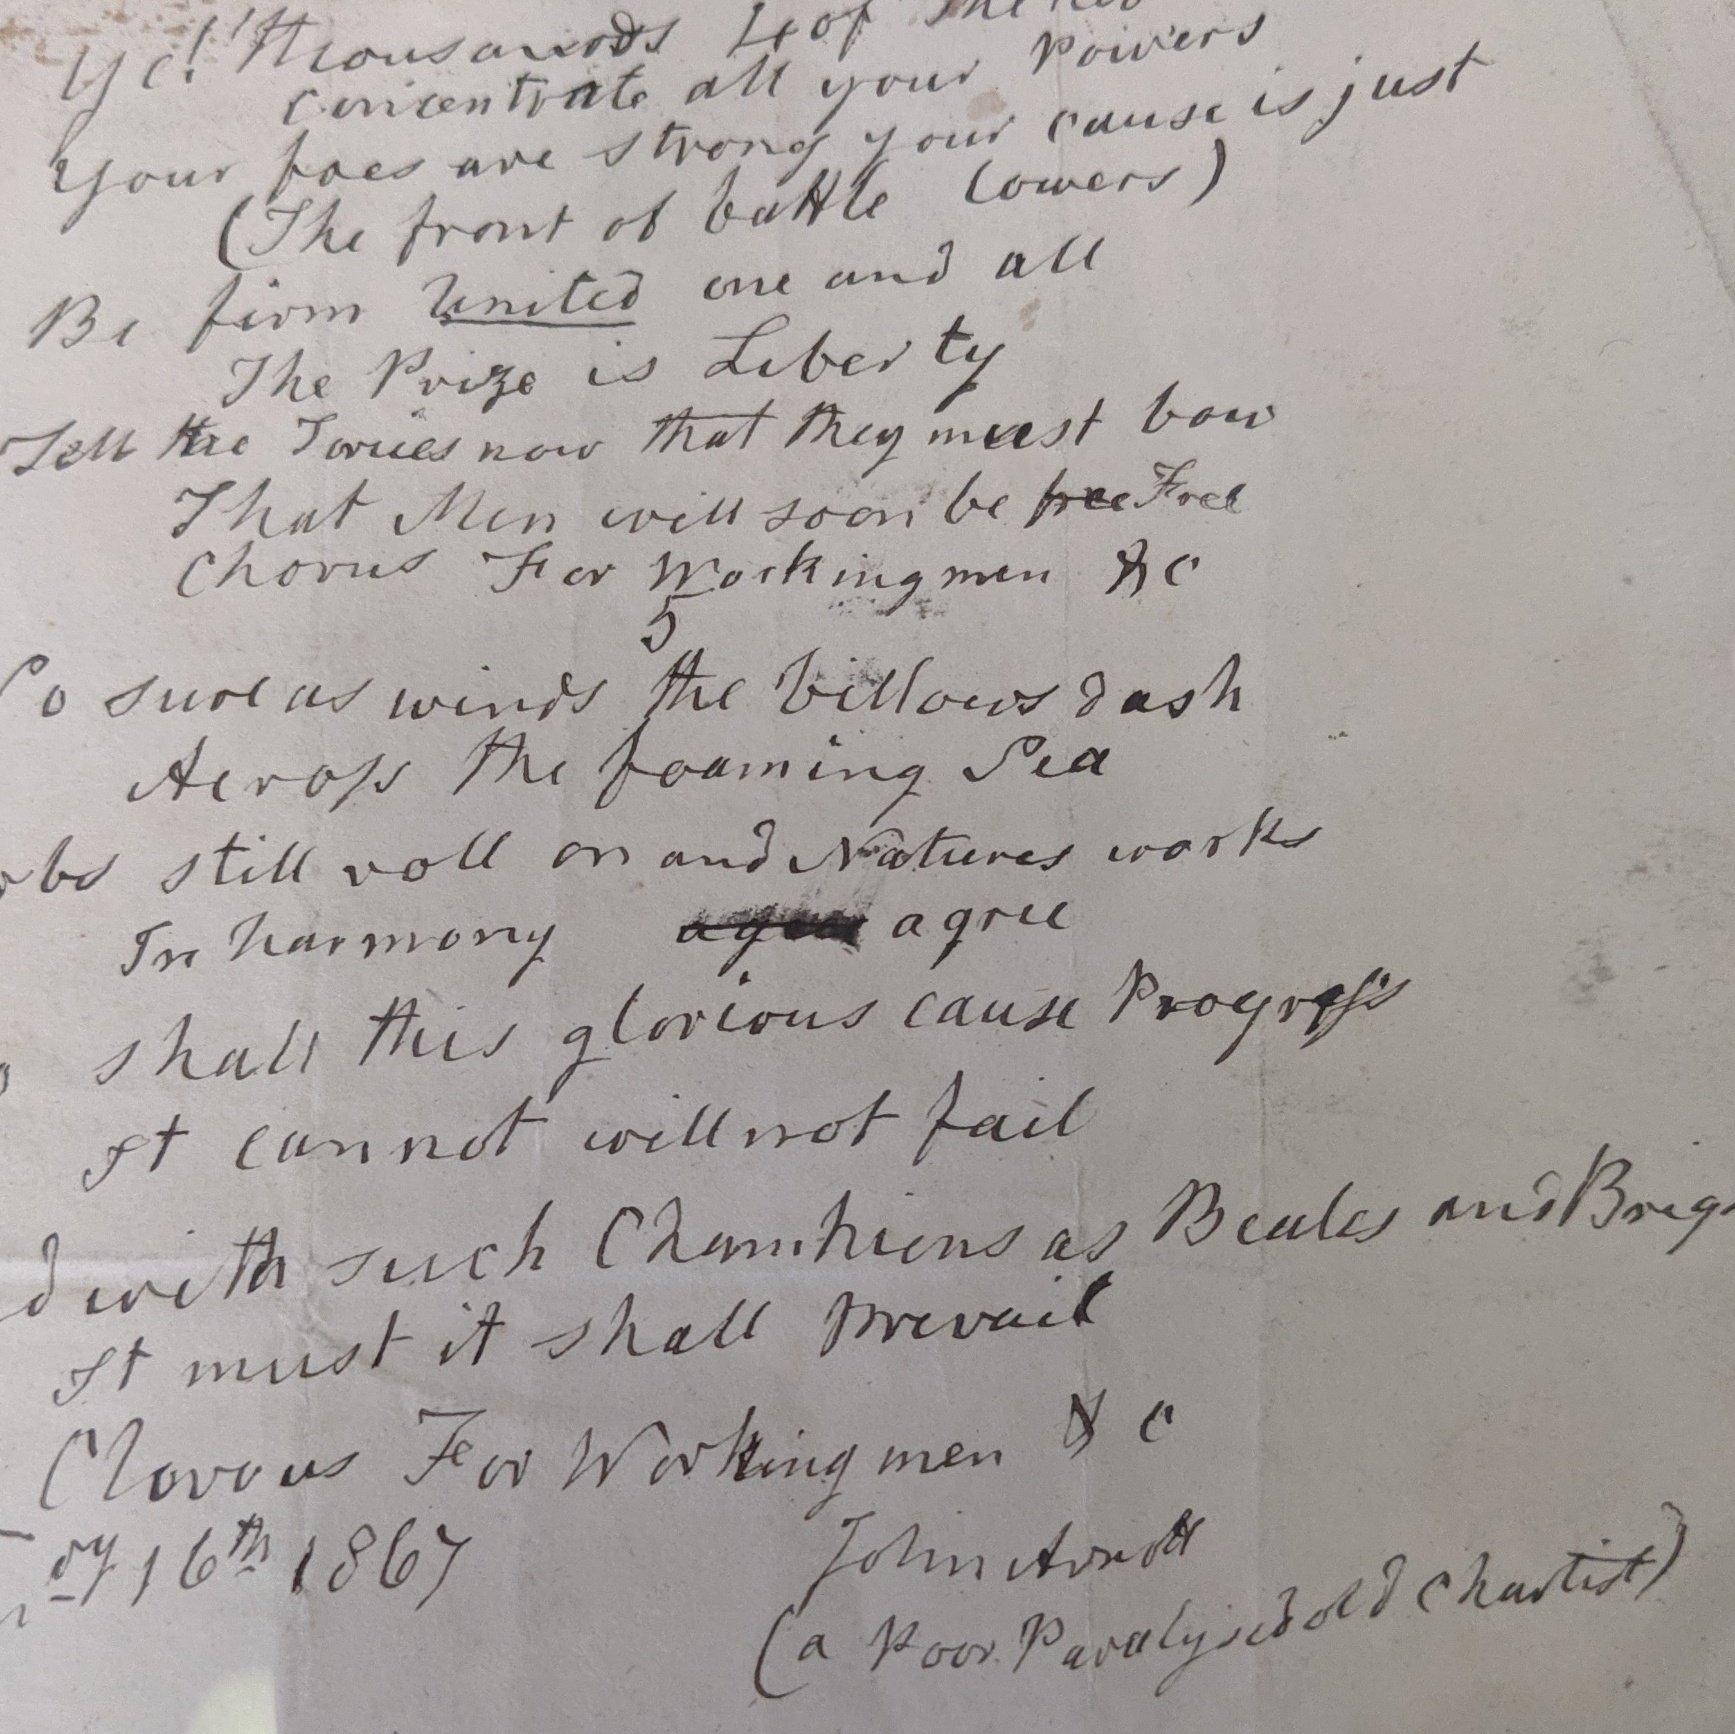 Ye! thousands
concentrate all your Powers
Your foes are strong your cause is just
(The front of battle lowers)
Be firm United one and all
The Prize is Liberty
Tell the Tories now that they must bow
That Men will soon be free Free
Chorus For Workingmen &c
5
So sure as winds the billows dash
Across the foaming Sea
still roll on and Natures works
In harmony agree agree
shall this glorious cause Progress
It cannot will not fail
with such Champions as Beales and Brig
It must it shall prevail
Chorous For Workingmen &c
16th 1867
John Arnott
(a Poor Paralysed old Chartist)